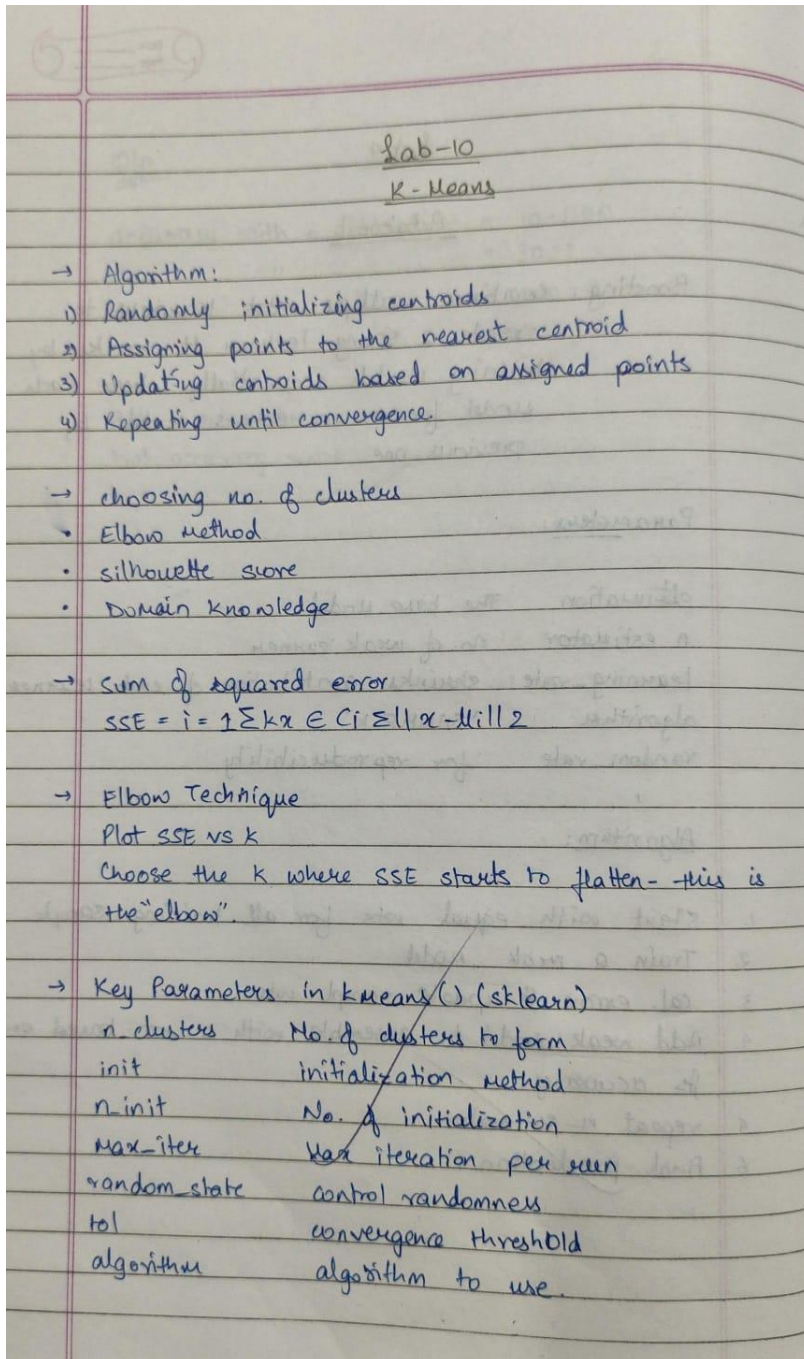 Lab-10
K-Means
→ Algorithm:
1) Randomly initializing centroids
2) Assigning points to the nearest centroid
3) Updating centroids based on assigned points
4) Repeating until convergence.
→ choosing no. of clusters
• Elbow Method
• silhouette score
• Domain Knowledge
→ sum of squared error
SSE = i = 1 Σ k x ∈ Ci Σ || x - Mi || 2
→ Elbow Technique
Plot SSE vs K
Choose the K where SSE starts to flatten - this is
the "elbow".
→ Key Parameters in KMeans() (sklearn)
n_clusters No. of clusters to form
init initialization method
n_init No. of initialization
Max_iter Max iteration per run
random_state control randomness
tol convergence threshold
algorithm algorithm to use.